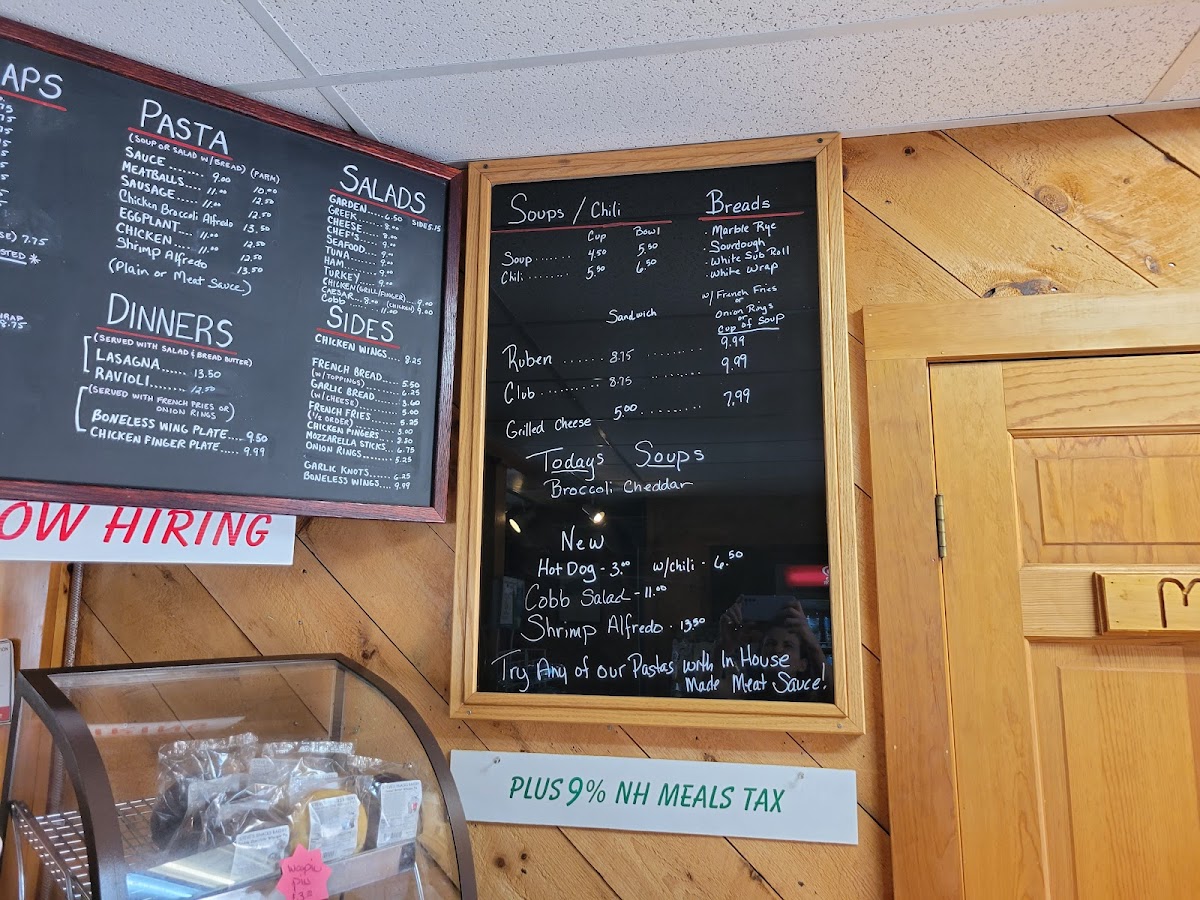 APS
7.75
PASTA
(SOUP OR SALAD W/BREAD) (PARM)
SAUCE........ 9.00 10.00
MEATBALLS.... 11.00 12.50
SAUSAGE...... 11.00 12.50
Chicken Broccoli Alfredo 13.50
EGGPLANT.... 11.00 12.50
CHICKEN..... 11.00 12.50
Shrimp Alfredo 13.50
(Plain or Meat Sauce)
DINNERS
(SERVED WITH SALAD & BREAD BUTTER)
LASAGNA...... 13.50
RAVIOLI....... 12.50
(SERVED WITH FRENCH FRIES OR
ONION RINGS)
BONELESS WING PLATE.... 9.50
CHICKEN FINGER PLATE.... 9.99
SALADS
GARDEN.....6.50 SIDE 5.75
GREEK..... 8.00
CHEESE.... 8.00
CHEF'S.... 9.00
SEAFOOD... 9.00
TUNA...... 9.00
HAM....... 9.00
TURKEY.... 9.00
CHICKEN (GRILL/FINGER).... 9.00
CAESAR... 8.00 (CHICKEN) 9.00
Cobb ....... 11.00
SIDES
CHICKEN WINGS.... 8.25
FRENCH BREAD..... 5.50
(W/TOPPINGS)...... 6.25
GARLIC BREAD...... 3.60
(W/CHEESE)....... 5.00
FRENCH FRIES...... 5.25
(1/2 ORDER)....... 3.00
CHICKEN FINGERS..
MOZZARELLA STICKS... 6.75
ONION RINGS....... 5.25
GARLIC KNOTS...... 6.25
BONELESS WINGS.... 9.99
OW HIRING
Soups / Chili
Cup Bowl
Soup........ 4.50 5.50
Chili........ 5.50 6.50
Breads
· Marble Rye
· Sourdough
· White Sub Roll
· White Wrap
Sandwich
w/ French Fries
or
Onion Rings
or
Cup of Soup
Ruben ....... 8.75 .......... 9.99
Club .......... 8.75 .......... 9.99
Grilled Cheese 5.00 .......... 7.99
Todays Soups
Broccoli Cheddar
New
Hot Dog - 3.00 w/chili - 6.50
Cobb Salad - 11.00
Shrimp Alfredo - 13.50
Try Any of our Pastas with In House
Made Meat Sauce!
PLUS 9% NH MEALS TAX